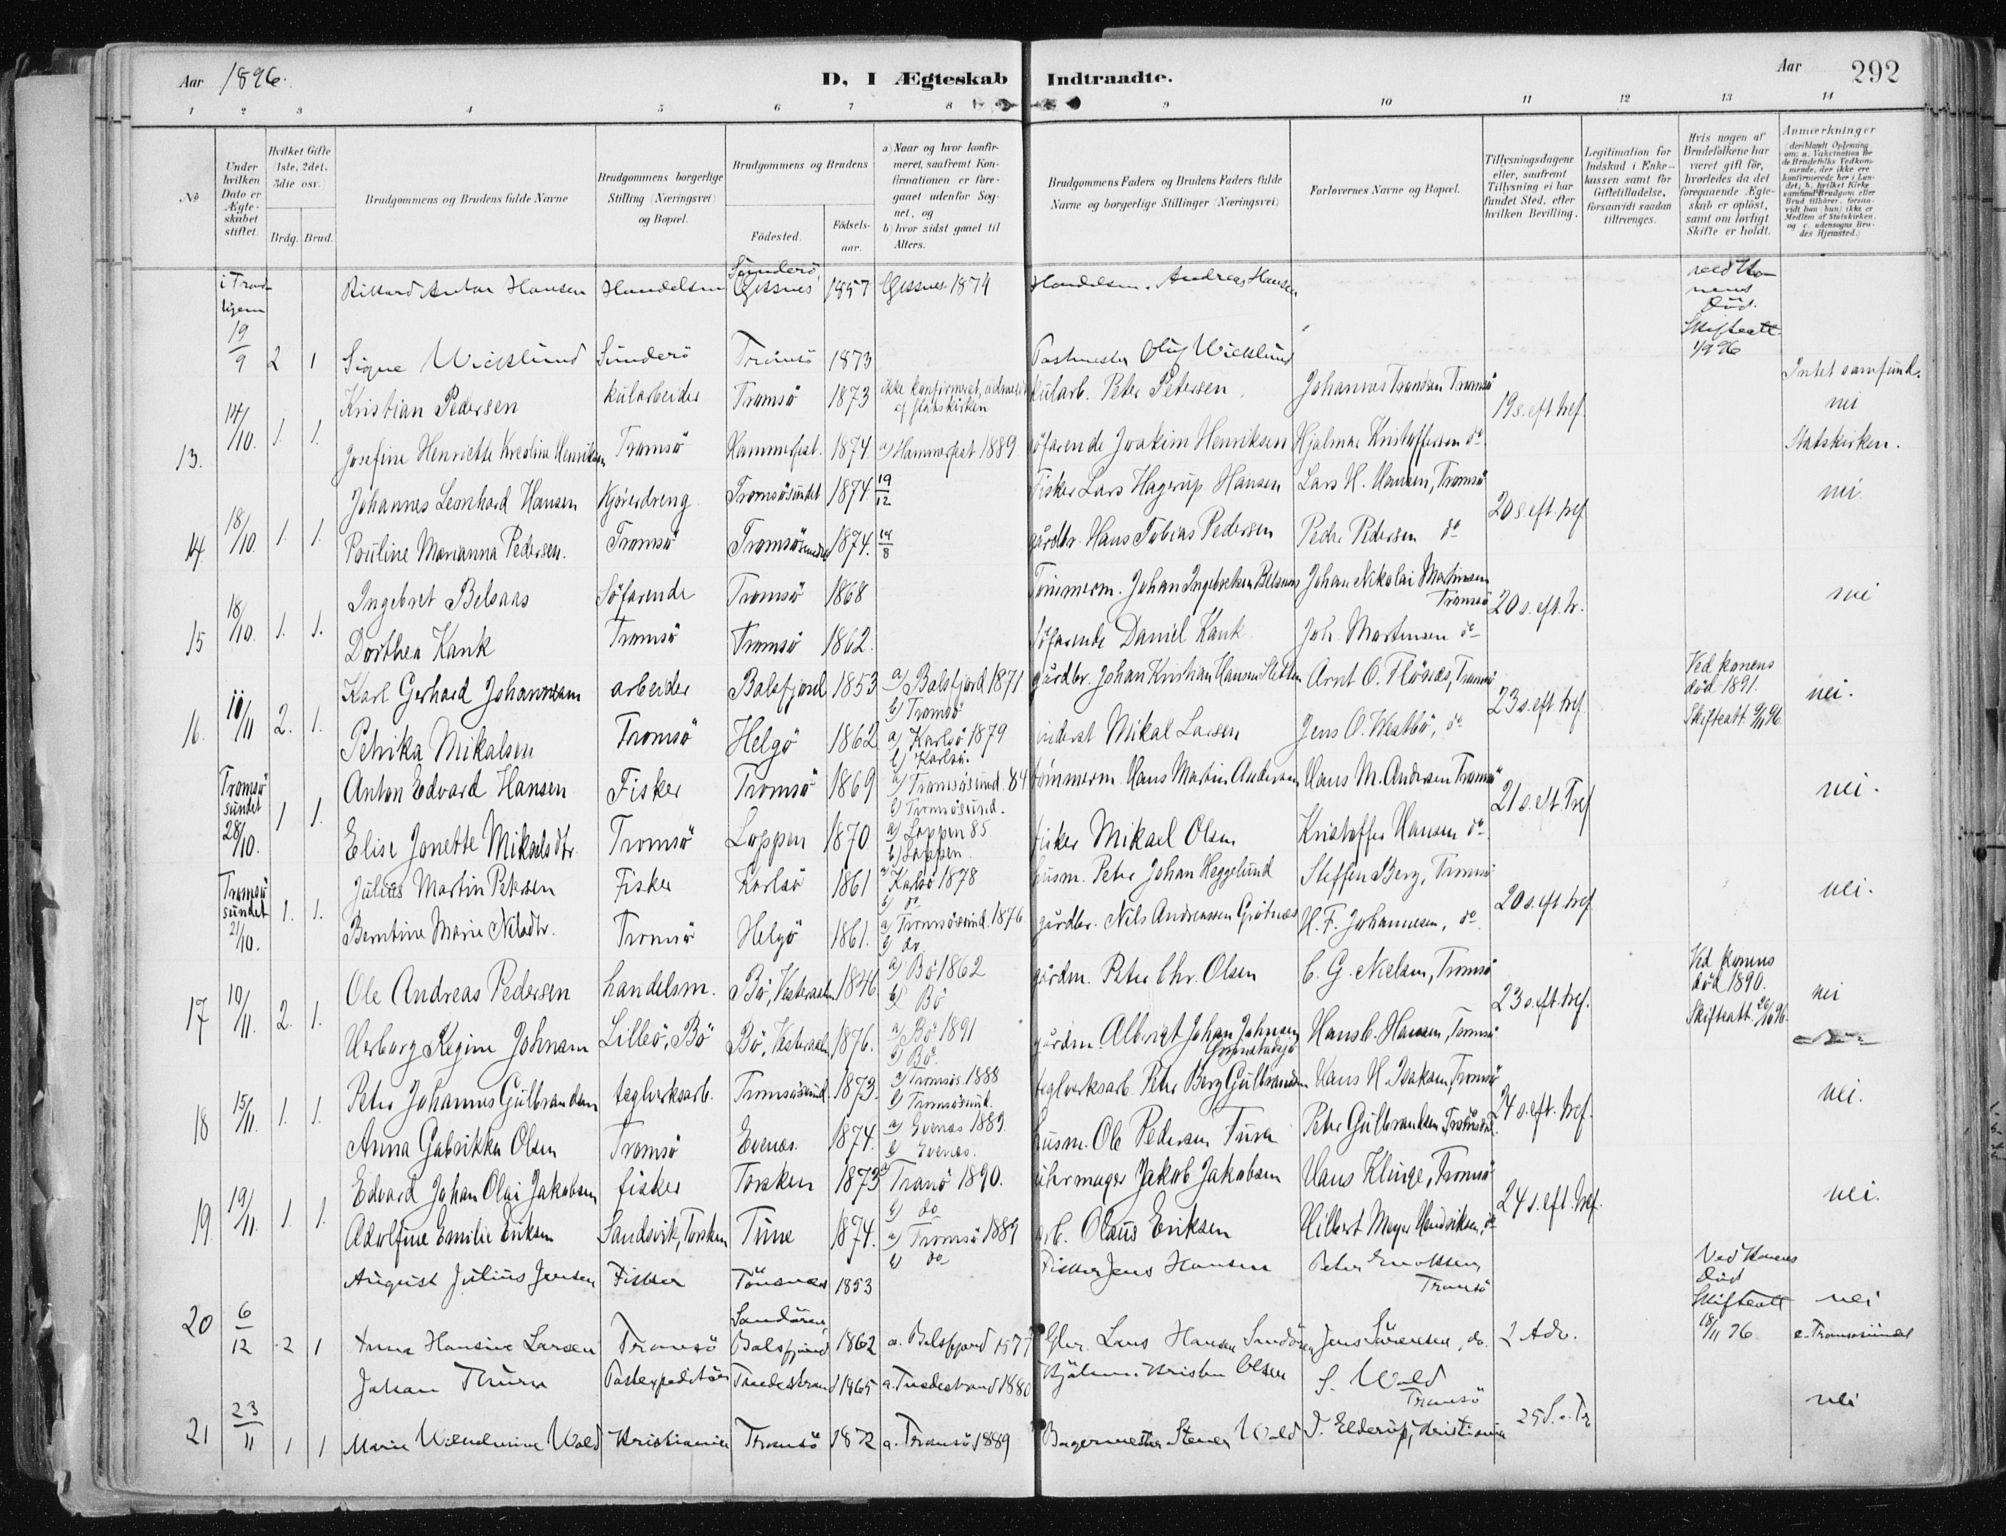 Aar 1896. D, I Ægteskab Indtraadte. Aar 292
1 2 3 4 5 6 7 8 9 10 11 12 13 14
No
Under hvilken Dato er Ægteskabet stiftet.
Hvilket Gifte (1ste, 2det, 3die osv.)
Brdg. Brud.
Brudgommens og Brudens fulde Navne
Brudgommens borgerlige Stilling (Næringsvei) og Bopæl.
Brudgommens og Brudens
Fødested. Fødselsaar.
a) Naar og hvor konfirmeret, saafremt Konfirmationen er foregaaet udenfor Sognet, og
b) hvor sidst gaaet til Alters.
Brudgommens Faders og Brudens Faders fulde Navne og borgerlige Stillinger (Næringsvei)
Forlovernes Navne og Bopæl.
Tillysningsdagene eller, saafremt Tillysning ei har fundet Sted, efter hvilken Bevilling.
Legitimation for Indskud i Enkekassen samt for Giftetilladelse, forsaavidt saadan tiltrænges.
Hvis nogen af Brudefolkene har været gift før, hvorledes da det foregaaende Ægteskab er opløst, samt om lovligt Skifte er holdt.
Anmærkninger (deriblandt Oplysning om: a. Vakcination for de Brudefolks Vedkommende, der ikke ere konfirmerede her i Landet, b. hvilket Kirkesamfund Brudgom eller Brud tilhører, forsaavidt han (hun) ikke er Medlem af Statskirken, og c. udensogns Brudes Hjemsted.)
Rikard Anton Hansen Handelsm Gissnes 1857 Gissnes 1874 Handelsm. Andreas Hansen
19/9 2 1 Signe Wicklund Sunderö Tromsö 1873 Postmester Oluf Wicklund Skifteatt
Kristian Pedersen kularbeider Tromsö 1873 ikke konfirmeret, udmeldt af statskirken kularb. Peter Petersen Johannes Trondsen Tromsö 19 s. eft. tref. Intet samfund. nei
13. 14/10. 1. 1. Josefine Henriette Kreoline Henriksen Tromsö Hammerfest. 1874. a) Hammerfest 1889 söfarende Joakim Henriksen Hjalmar Kristoffersen do Statskirken.
Johannes Leonhard Hansen Kjøredreng Tromsösundet 1874. 19/12 Fisker Lars Hagerup Hansen Lars H. Hansen, Tromsö 20 s. eft. tref. nei.
14. 18/10. 1. 1. Pauline Marianna Pedersen. Tromsö Tromsösundet 1874. 14/8 gårdbr. Hans Tobias Pedersen Peder Pedersen do
Ingebret Belsaas Söfarende Tromsö 1868 Tömmerm. Johan Ingebretsen Belsaas Johan Nikolai Martinsen Tromsö 20 s. eft. tr. nei
15 18/10. 1. 1. Dorthea Kank Tromsö Tromsö 1862. Söfarende Daniel Kank Joh. Martinsen do
Karl Gerhard Johannesen arbeider Balsfjord 1853 a) Balsfjord 1871 b) Tromsö gårdbr. Johan Kristian Hansen Arnt O. Flönæs, Tromsö 23 s. eft. tref. Ved konens död 1891. nei.
16. 11/11 2. 1. Petrika Mikalsen Tromsö Helgö 1862 a) Karlsö 1879 b) Karlsö. inderst Mikal Larsen Jens O. Westbö, do
Tromsösundet 28/10. 1 1. Anton Edvard Hansen Fisker Tromsö 1869 a) Tromsösund. 84 b) Tromsösund. tömmerm. Hans Martin Andersen Hans M. Andersen Tromsö 21 s. eft. Tref nei.
Elise Jonette Mikaelsdtr. Tromsö Loppen 1870 a) Loppen 85 b) Loppen. fisker Mikael Olsen Kristoffer Hansen do
Tromsösundet 21/10. 1. 1. Julius Martin Petersen Fisker Karlsö 1861 a) Karlsö 1878 b) do husm. Peter Johan Heggelund Steffen Berg, Tromsö 20 s. eft. tref. nei.
Berntine Marie Nilsdtr. Tromsö Helgö 1861. a) Tromsösund. 1876 b) do gårdbr. Nils Andreassen Grötnes H. F. Johannesen, do
Ole Andreas Pedersen handelsm. Bö, Vesteraalen 1846 a) Bö 1862 b) Bö gårdm. Peter Chr. Olsen C. G. Nielsen, Tromsö 23 s. eft. tref. Ved konens död 1890. nei
17 10/11. 2. 1. Herborg Regine Johnsen Lilleö, Bö Bö, Vesteraalen 1876. a) Bö 1891 b) Bö. gårdm. Albrigt Johan Johnsen Hans C. Hansen, Tromsö Skifteatt. 26/10 96.
Peter Johannes Gulbrandsen teglverksarb. Tromsösund. 1873. a) Tromsös. 1888 b) Tromsösund. teglverksarb. Peter Berg Gulbrandsen Hans H. Isaksen, Tromsö 24 s. eft. tref. nei.
18 15/11. 1. 1. Anna Gabrikka Olsen Tromsö Evenæs. 1874. a) Evenæs 1889. b) Evenæs. husm. Ole Pedersen Peter Gulbrandsen
Edvard Johan Olai Jakobsen fisker Torsken 1873 a) Tranö 1890. b) do uhrmager Jakob Jakobsen Hans Klinge, Tromsö 24 s. eft. tref. nei.
19. 19/11. 1. 1. Adolfine Emilie Eriksen Sandsvik, Torsken Tune 1874. a) Tromsö 1889 b) do arb. Olaus Eriksen Hilbert Meyer Hendriksen, do
August Julius Jensen Fisker Tönsnæs 1853 Fisker Jens Hansen Peter Enoksen Tromsö Ved Konens Död Skifteatt 18/11 96 nei
20 6/12 2 1 Anna Hansine Larsen Tromsö Sandören, Balsfjord 1862 a. Balsfjord 1877 Gbr. Lars Hansen Sandören Jens Sørensen, do. 2 Adv. c. Tromsösundet
Johan Thurn Postexpeditör Tvedestrand 1865 a. Tvedestrand 1880 Kristen Olsen S. Wold Tromsö nei
21 23/11 1 1 Marie Wilhelmine Wold Kristiania Tromsö 1872 a. Tromsö 1889 Bagermester Wold J. Elderup, Kristiania 25 S. e. Tr